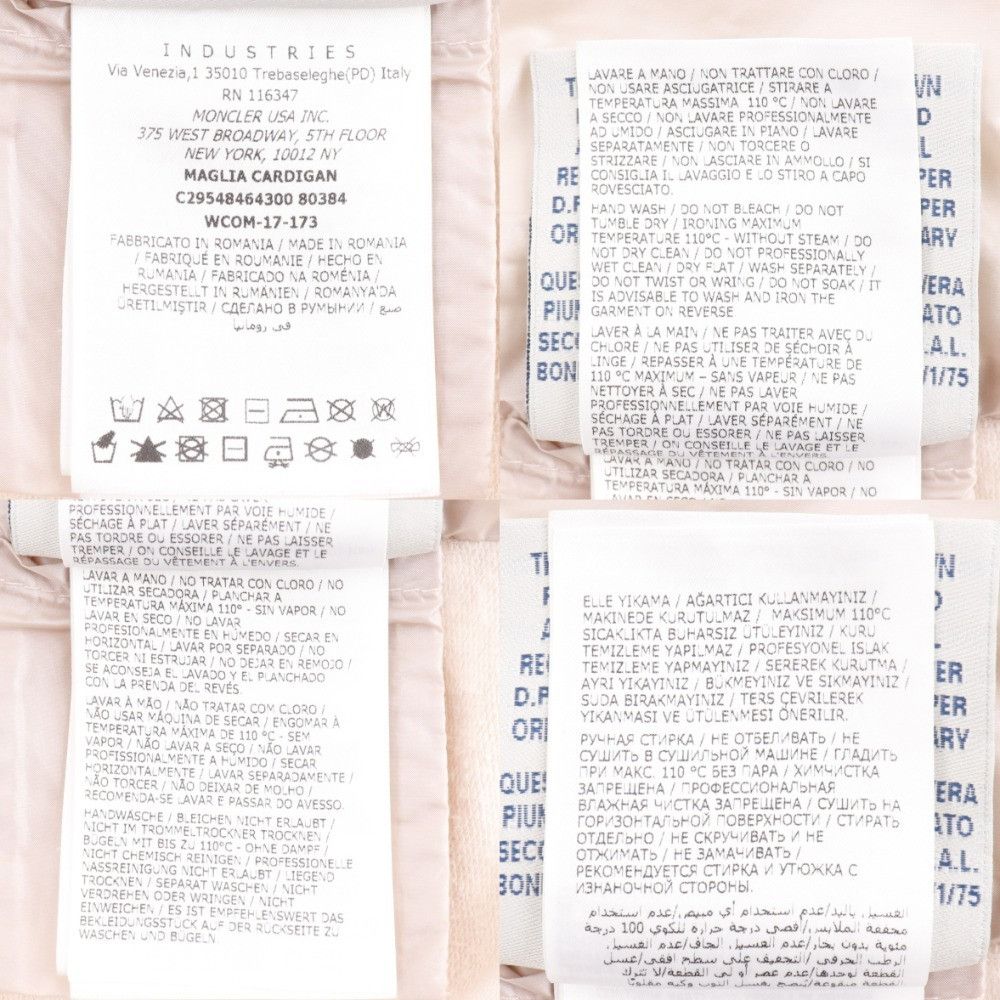 INDUSTRIES
Via Venezia,1 35010 Trebaseleghe(PD) Italy
RN 116347
MONCLER USA INC.
375 WEST BROADWAY, 5TH FLOOR
NEW YORK, 10012 NY
MAGLIA CARDIGAN
C29548464300 80384
WCOM-17-173
FABBRICATO IN ROMANIA / MADE IN ROMANIA
/ FABRIQUÉ EN ROUMANIE / HECHO EN
RUMANIA / FABRICADO NA ROMÉNIA /
HERGESTELLT IN RUMÄNIEN / ROMANYA'DA
ÜRETILMIŞTIR / СДЕЛАНО В РУМЫНИИ / صنع
في رومانيا
LAVARE A MANO / NON TRATTARE CON CLORO /
NON USARE ASCIUGATRICE / STIRARE A
TEMPERATURA MASSIMA 110 °C / NON LAVARE
A SECCO / NON LAVARE PROFESSIONALMENTE
AD UMIDO / ASCIUGARE IN PIANO / LAVARE
SEPARATAMENTE / NON TORCERE O
STRIZZARE / NON LASCIARE IN AMMOLLO / SI
CONSIGLIA IL LAVAGGIO E LO STIRO A CAPO
ROVESCIATO.
HAND WASH / DO NOT BLEACH / DO NOT
TUMBLE DRY / IRONING MAXIMUM
TEMPERATURE 110°C - WITHOUT STEAM / DO
NOT DRY CLEAN / DO NOT PROFESSIONALLY
WET CLEAN / DRY FLAT / WASH SEPARATELY /
DO NOT TWIST OR WRING / DO NOT SOAK / IT
IS ADVISABLE TO WASH AND IRON THE
GARMENT ON REVERSE
LAVER À LA MAIN / NE PAS TRAITER AVEC DU
CHLORE / NE PAS UTILISER DE SÉCHOIR À
LINGE / REPASSER À UNE TEMPÉRATURE DE
110 °C MAXIMUM – SANS VAPEUR / NE PAS
NETTOYER À SEC / NE PAS LAVER
PROFESSIONNELLEMENT PAR VOIE HUMIDE /
SÉCHAGE À PLAT / LAVER SÉPARÉMENT / NE
PAS TORDRE OU ESSORER / NE PAS LAISSER
TREMPER / ON CONSEILLE LE LAVAGE ET LE
REPASSAGE DU VÊTEMENT À L'ENVERS
LAVAR A MANO / NO TRATAR CON CLORO / NO
UTILIZAR SECADORA / PLANCHAR A
TEMPERATURA MÁXIMA 110° - SIN VAPOR / NO
PROFESSIONNELLEMENT PAR VOIE HUMIDE /
SÉCHAGE À PLAT / LAVER SÉPARÉMENT / NE
PAS TORDRE OU ESSORER / NE PAS LAISSER
TREMPER / ON CONSEILLE LE LAVAGE ET LE
REPASSAGE DU VÊTEMENT À L'ENVERS.
LAVAR A MANO / NO TRATAR CON CLORO / NO
UTILIZAR SECADORA / PLANCHAR A
TEMPERATURA MÁXIMA 110° - SIN VAPOR / NO
LAVAR EN SECO / NO LAVAR
PROFESIONALMENTE EN HÚMEDO / SECAR EN
HORIZONTAL / LAVAR POR SEPARADO / NO
TORCER NI ESTRUJAR / NO DEJAR EN REMOJO /
SE ACONSEJA EL LAVADO Y EL PLANCHADO
CON LA PRENDA DEL REVÉS.
LAVAR À MÃO / NÃO TRATAR COM CLORO /
NÃO USAR MÁQUINA DE SECAR / ENGOMAR À
TEMPERATURA MÁXIMA DE 110 °C - SEM
VAPOR / NÃO LAVAR A SEÇO / NÃO LAVAR
PROFISSIONALMENTE A HÚMIDO / SECAR
HORIZONTALMENTE / LAVAR SEPARADAMENTE /
NÃO TORCER / NÃO DEIXAR DE MOLHO /
RECOMENDA-SE LAVAR E PASSAR DO AVESSO.
HANDWÄSCHE / BLEICHEN NICHT ERLAUBT /
NICHT IM TROMMELTROCKNER TROCKNEN /
BÜGELN MIT BIS ZU 110°C - OHNE DAMPF /
NICHT CHEMISCH REINIGEN / PROFESSIONELLE
NASSREINIGUNG NICHT ERLAUBT / LIEGEND
TROCKNEN / SEPARAT WASCHEN / NICHT
VERDREHEN ODER WRINGEN / NICHT
EINWEICHEN / ES IST EMPFEHLENSWERT DAS
BEKLEIDUNGSSTÜCK AUF DER RÜCKSEITE ZU
WASCHEN UND BÜGELN
ELLE YIKAMA / AĞARTICI KULLANMAYINIZ /
MAKINEDE KURUTULMAZ / MAKSIMUM 110°C
SICAKLIKTA BUHARSIZ ÜTÜLEYINIZ / KURU
TEMIZLEME YAPILMAZ / PROFESYONEL ISLAK
TEMIZLEME YAPMAYINIZ / SEREREK KURUTMA /
AYRI YIKAYINIZ / BÜKMEYINIZ VE SIKMAYINIZ /
SUDA BIRAKMAYINIZ / TERS ÇEVRILEREK
YIKANMASI VE ÜTÜLENMESI ÖNERILIR.
РУЧНАЯ СТИРКА / НЕ ОТБЕЛИВАТЬ / НЕ
СУШИТЬ В СУШИЛЬНОЙ МАШИНЕ / ГЛАДИТЬ
ПРИ МАКС. 110 °C БЕЗ ПАРА / ХИМЧИСТКА
ЗАПРЕЩЕНА / ПРОФЕССИОНАЛЬНАЯ
ВЛАЖНАЯ ЧИСТКА ЗАПРЕЩЕНА / СУШИТЬ НА
ГОРИЗОНТАЛЬНОЙ ПОВЕРХНОСТИ / СТИРАТЬ
ОТДЕЛЬНО / НЕ СКРУЧИВАТЬ И НЕ
ОТЖИМАТЬ / НЕ ЗАМАЧИВАТЬ /
РЕКОМЕНДУЕТСЯ СТИРКА И УТЮЖКА С
ИЗНАНОЧНОЙ СТОРОНЫ.
الغسيل باليد/عدم استخدام أي مبيض/عدم استخدام
مجففة الملابس/أقصى درجة حرارة للكوي 100 درجة
مئوية بدون بخار/عدم الغسيل الجاف/عدم الغسيل
الرطب الحرفي/التجفيف على سطح افقي/غسل
القطعة لوحدها/عدم عصر أو لي القطعة/لا تترك